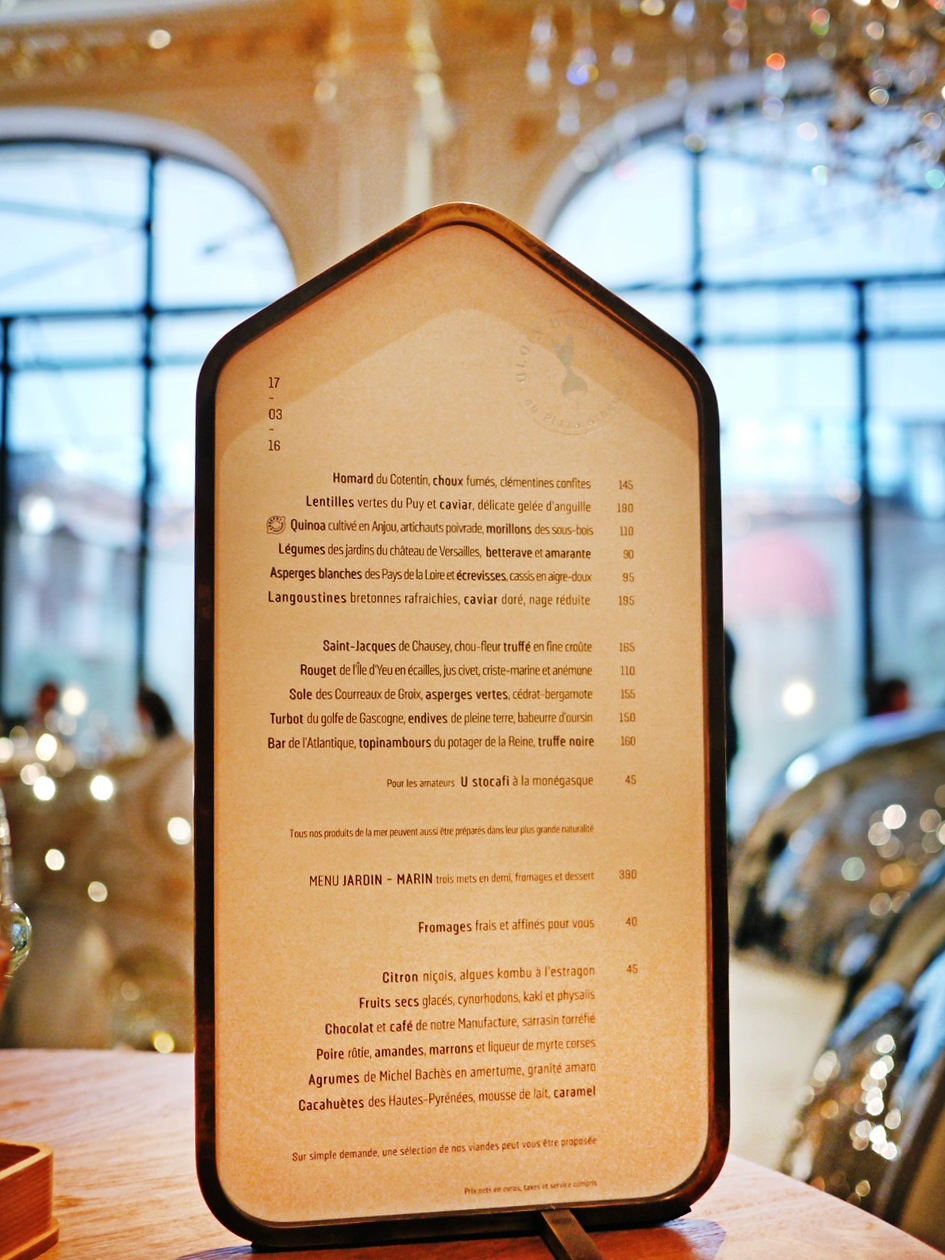 17
-
03
-
16
Homard du Cotentin, choux fumés, clémentines confites 145
Lentilles vertes du Puy et caviar, délicate gelée d'anguille 190
Quinoa cultivé en Anjou, artichauts poivrade, morillons des sous-bois 110
Légumes des jardins du château de Versailles, betterave et amarante 90
Asperges blanches des Pays de la Loire et écrevisses, cassis en aigre-doux 95
Langoustines bretonnes rafraichies, caviar doré, nage réduite 195
Saint-Jacques de Chausey, chou-fleur truffé en fine croûte 165
Rouget de l'Île d'Yeu en écailles, jus civet, criste-marine et anémone 110
Sole des Courreaux de Groix, asperges vertes, cédrat-bergamote 155
Turbot du golfe de Gascogne, endives de pleine terre, babeurre d'oursin 150
Bar de l'Atlantique, topinambours du potager de la Reine, truffe noire 160
Pour les amateurs U stocafi à la monégasque 45
Tous nos produits de la mer peuvent aussi être préparés dans leur plus grande naturalité
MENU JARDIN - MARIN trois mets en demi, fromages et dessert 390
Fromages frais et affinés pour vous 40
Citron niçois, algues kombu à l'estragon 45
Fruits secs glacés, cynorhodons, kaki et physalis
Chocolat et café de notre Manufacture, sarrasin torréfié
Poire rôtie, amandes, marrons et liqueur de myrte corses
Agrumes de Michel Bachès en amertume, granité amaro
Cacahuètes des Hautes-Pyrénées, mousse de lait, caramel
Sur simple demande, une sélection de nos viandes peut vous être proposée
Prix nets en euros, taxes et service compris